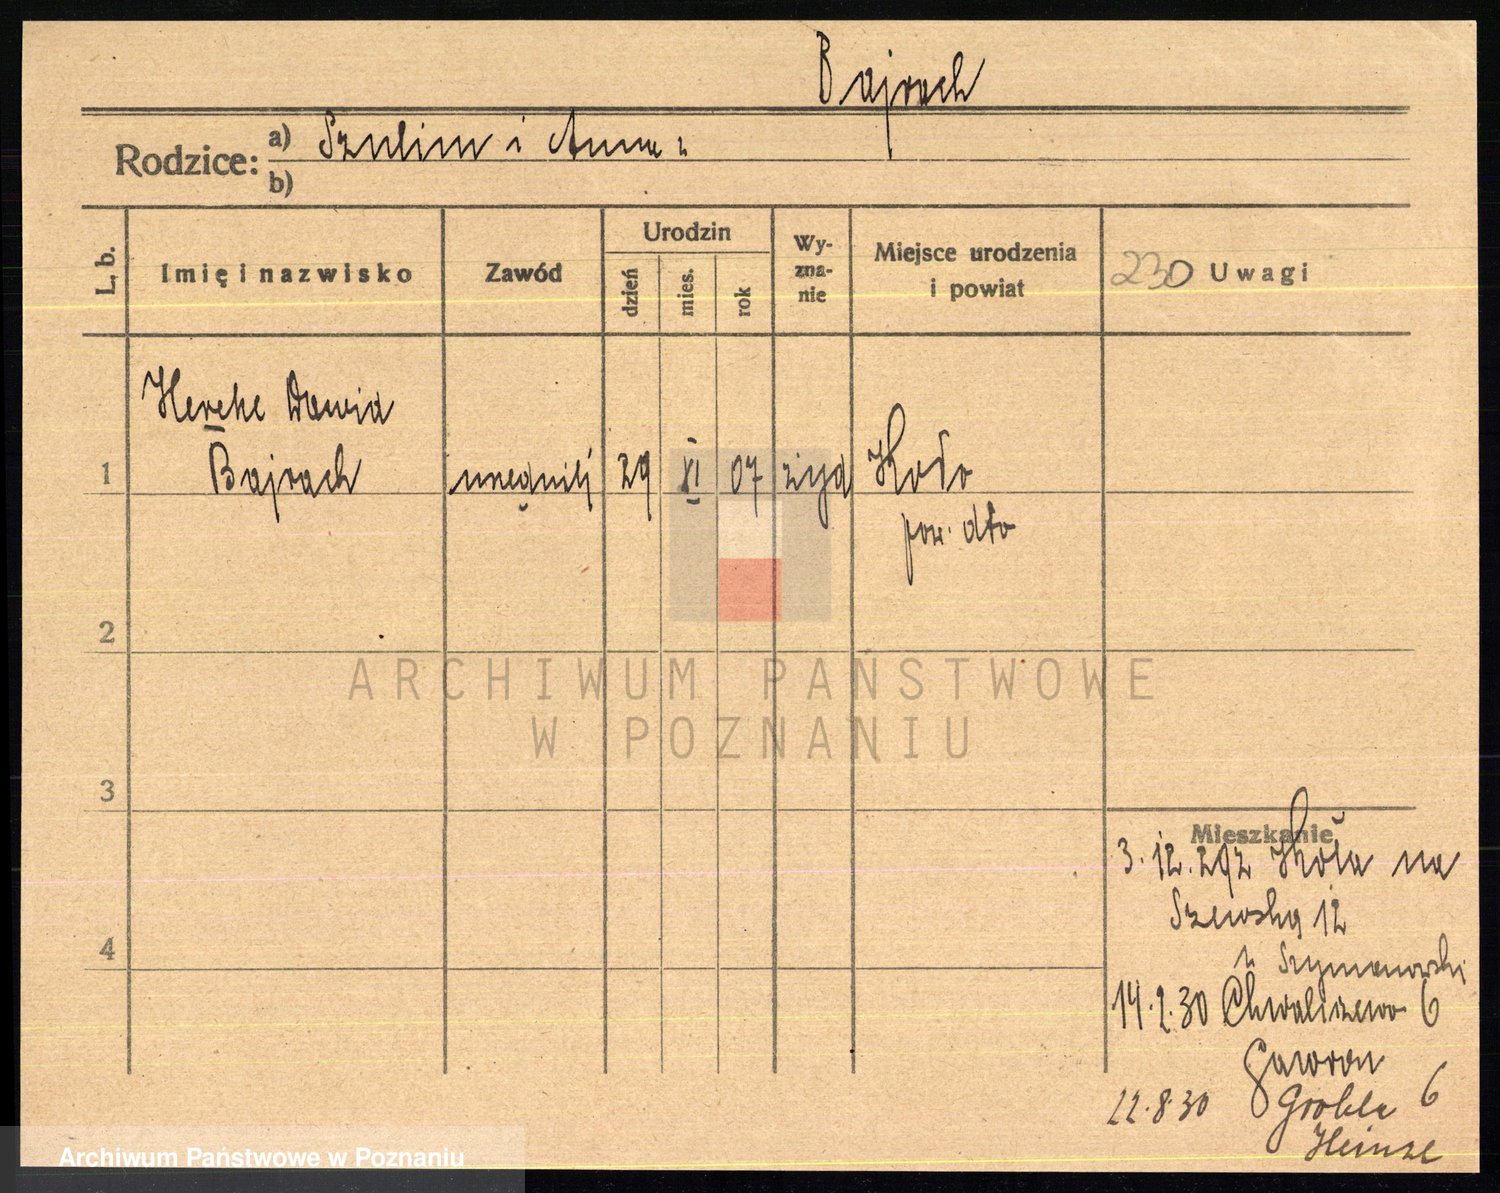 Bajrach
Rodzice: a) Szulim i Anna
b)
L. b.
Imię i nazwisko
Zawód
Urodzin
dzień
mies.
rok
Wy-
zna-
nie
Miejsce urodzenia
i powiat
230 Uwagi
Dawid
1 Bajrach 29 XI 07 żyd Koło
pow. dto
2
3
4
Mieszkanie
3. 12. 29 z Koła na
Szewską 12
u Szymanowski
14.2.30 Chwaliszewo 6
Gawron
22.8.30 Grobla 6
Heinze
ARCHIWUM PAŃSTWOWE
W POZNANIU
Archiwum Państwowe w Poznaniu